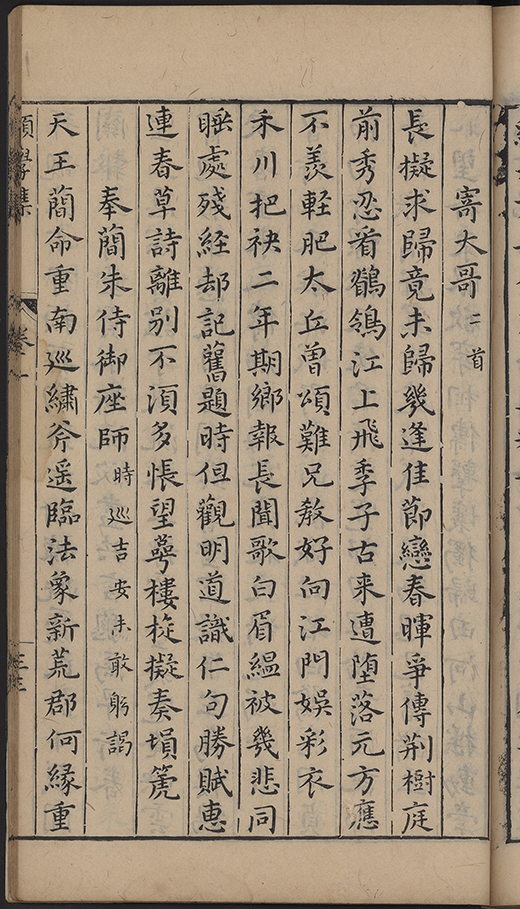 寄大哥二首
長擬求歸竟未歸幾逢佳節戀春暉爭傳荆樹庭
前秀忍看鶺鴒江上飛季子古来遭堕落元方應
不羨軽肥太丘曾頌難兄教好向江門娯彩衣
禾川把袂二年期鄉報長聞歌白眉緼被幾悲同
睡處殘経却記舊題時但觀明道識仁句勝賦惠
連春草詩離別不湏多悵望蕚樓旋擬奏塤箎
奉蕳朱侍御座師時巡吉安未敢躬謁
天王蕳命重南巡繡斧遥臨法象新荒郡何縁重